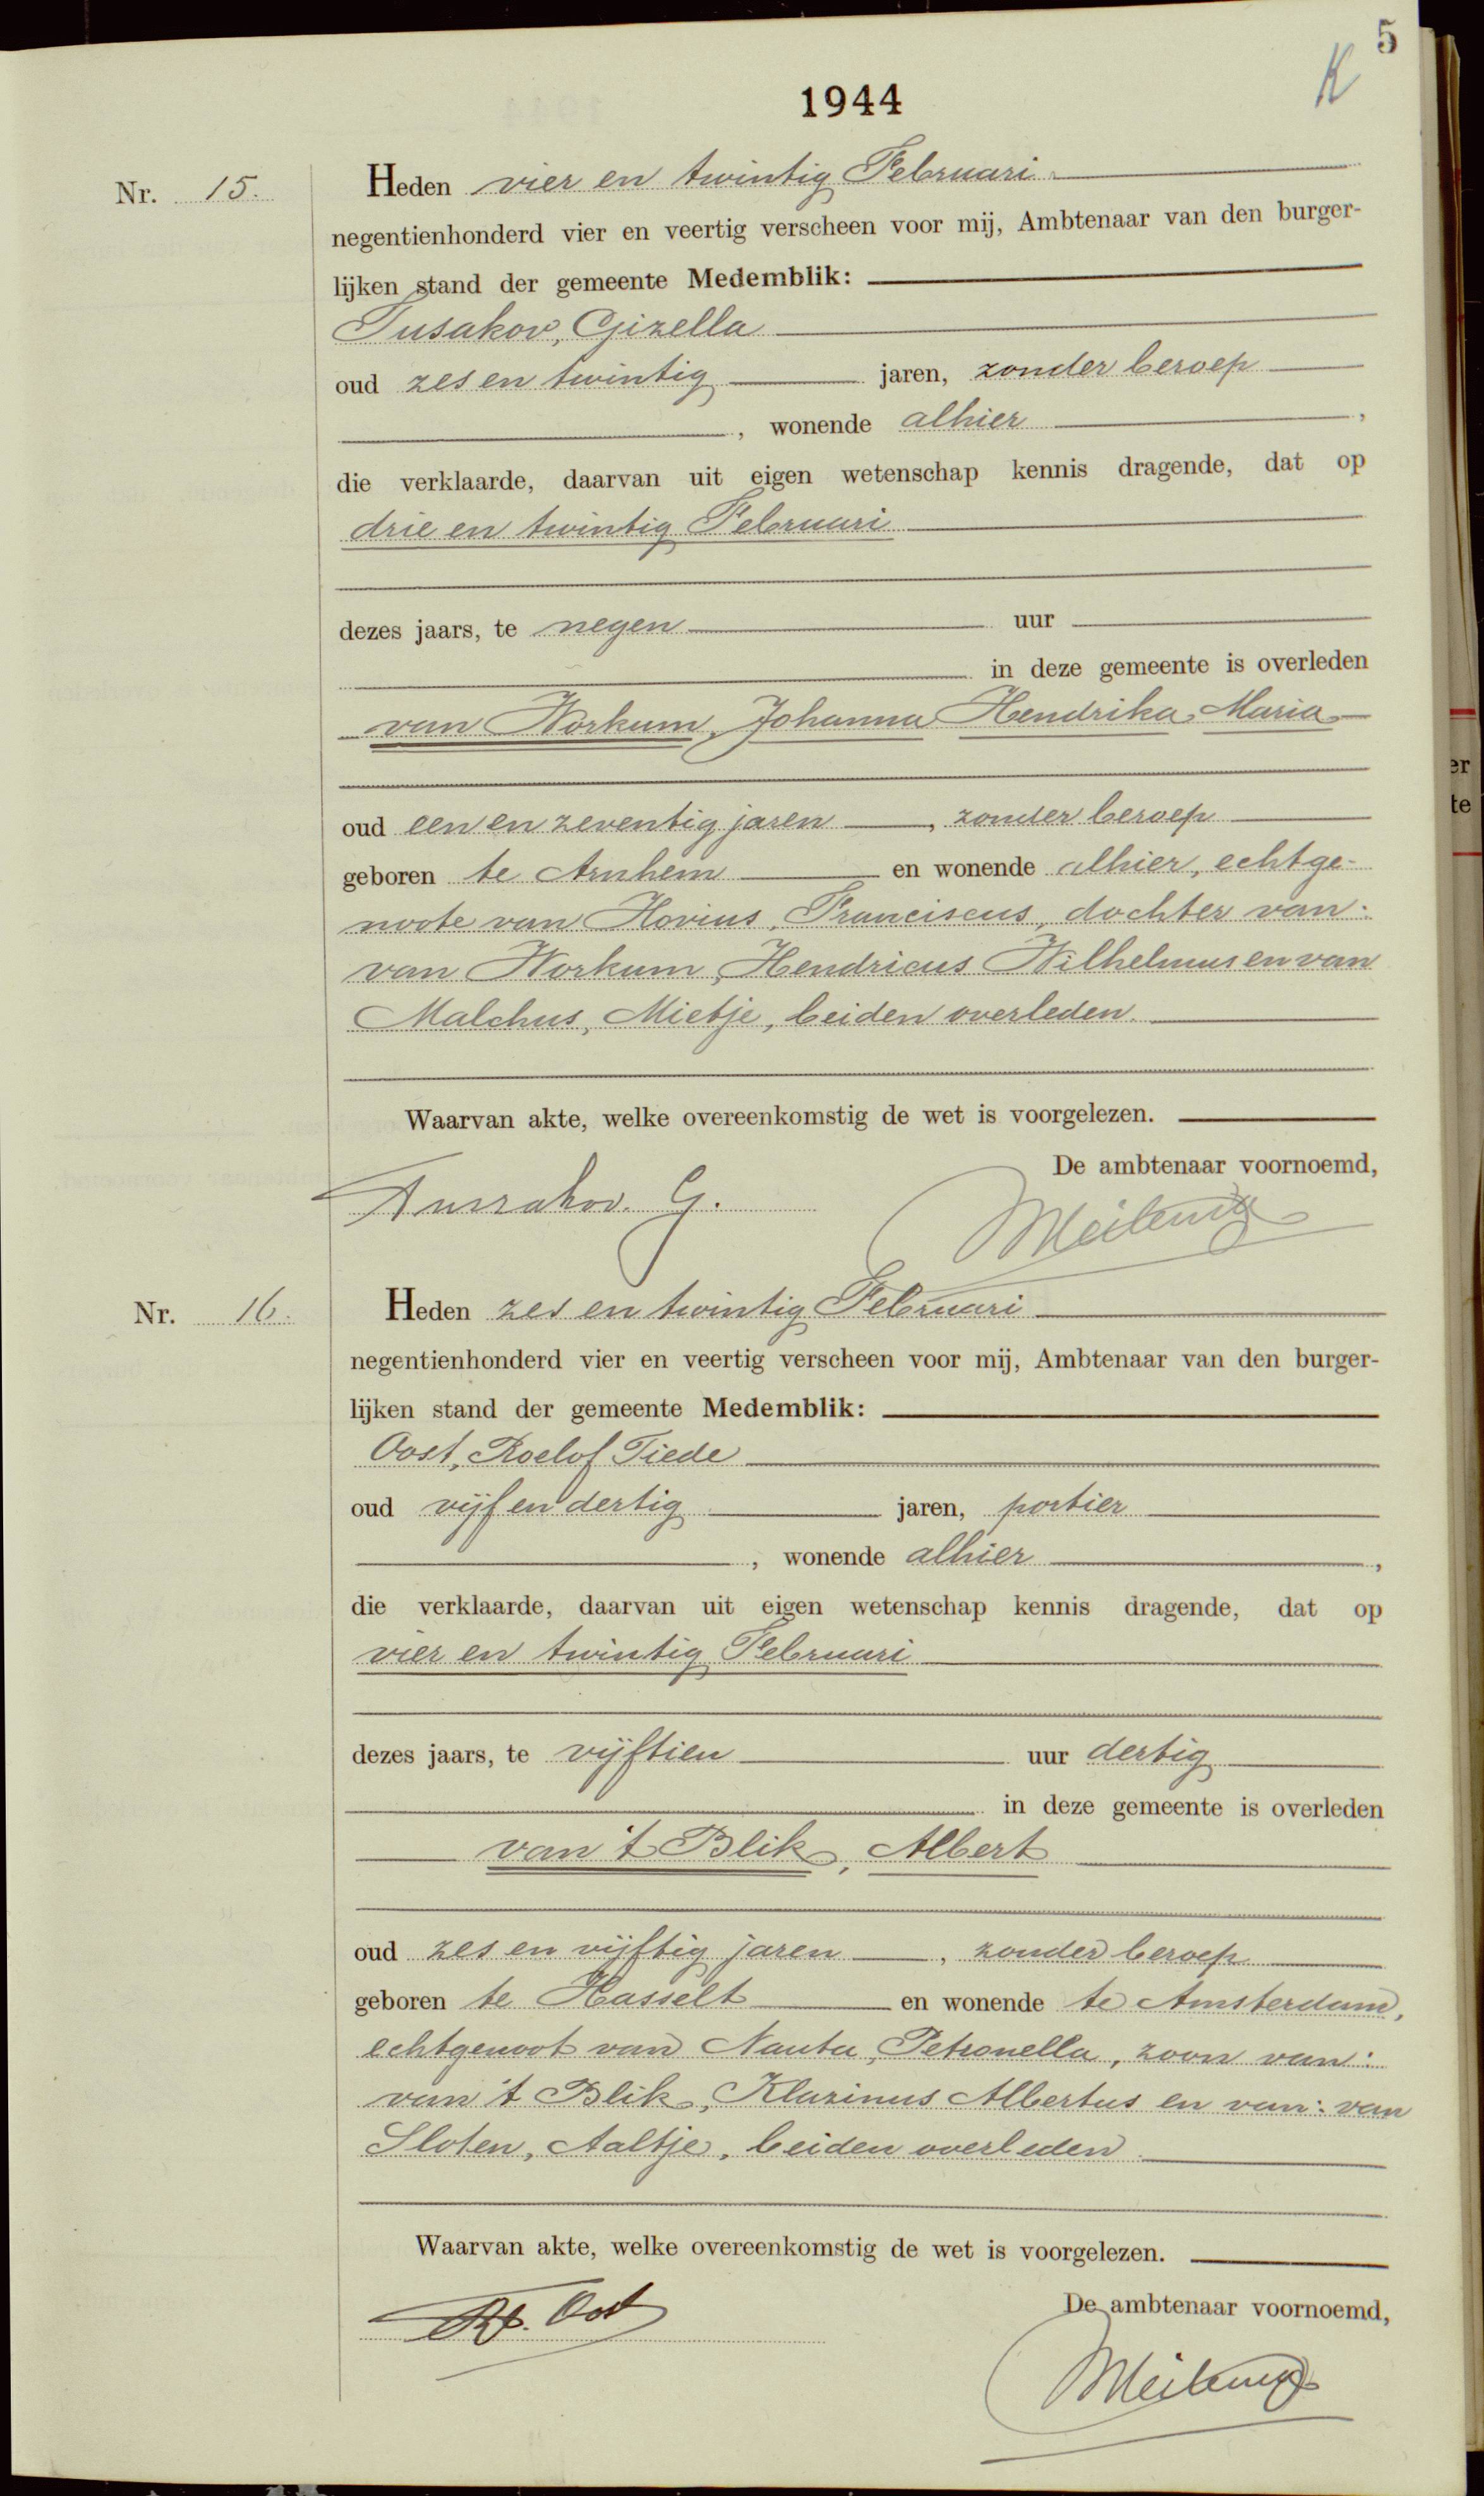 5
K
1944
Nr. 15.
Heden vier en twintig Februari
negentienhonderd vier en veertig verscheen voor mij, Ambtenaar van den burger-
lijken stand der gemeente Medemblik:
Tusakov, Gizella
oud zes en twintig jaren, zonder beroep
, wonende alhier ,
die verklaarde, daarvan uit eigen wetenschap kennis dragende, dat op
drie en twintig Februari
dezes jaars, te negen uur
in deze gemeente is overleden
van Workum, Johanna Hendrika Maria
oud een en zeventig jaren , zonder beroep
geboren te Arnhem en wonende alhier, echtge-
noote van Hovius, Franciscus, dochter van:
van Workum, Hendricus Wilhelmus en van
Malchus, Mietje, beiden overleden.
Waarvan akte, welke overeenkomstig de wet is voorgelezen.
De ambtenaar voornoemd,
G.
Nr. 16.
Heden zes en twintig Februari
negentienhonderd vier en veertig verscheen voor mij, Ambtenaar van den burger-
lijken stand der gemeente Medemblik:
Oost, Roelof Tiede
oud vijf en dertig jaren, portier
, wonende alhier ,
die verklaarde, daarvan uit eigen wetenschap kennis dragende, dat op
vier en twintig Februari
dezes jaars, te vijftien uur dertig
in deze gemeente is overleden
van 't Blik, Albert
oud zes en vijftig jaren , zonder beroep
geboren te Hasselt en wonende te Amsterdam,
echtgenoot van Nauta, Petronella, zoon van:
van 't Blik, Klazinus Albertus en van: van
Sloten, Aaltje, beiden overleden
Waarvan akte, welke overeenkomstig de wet is voorgelezen.
De ambtenaar voornoemd,
Oost